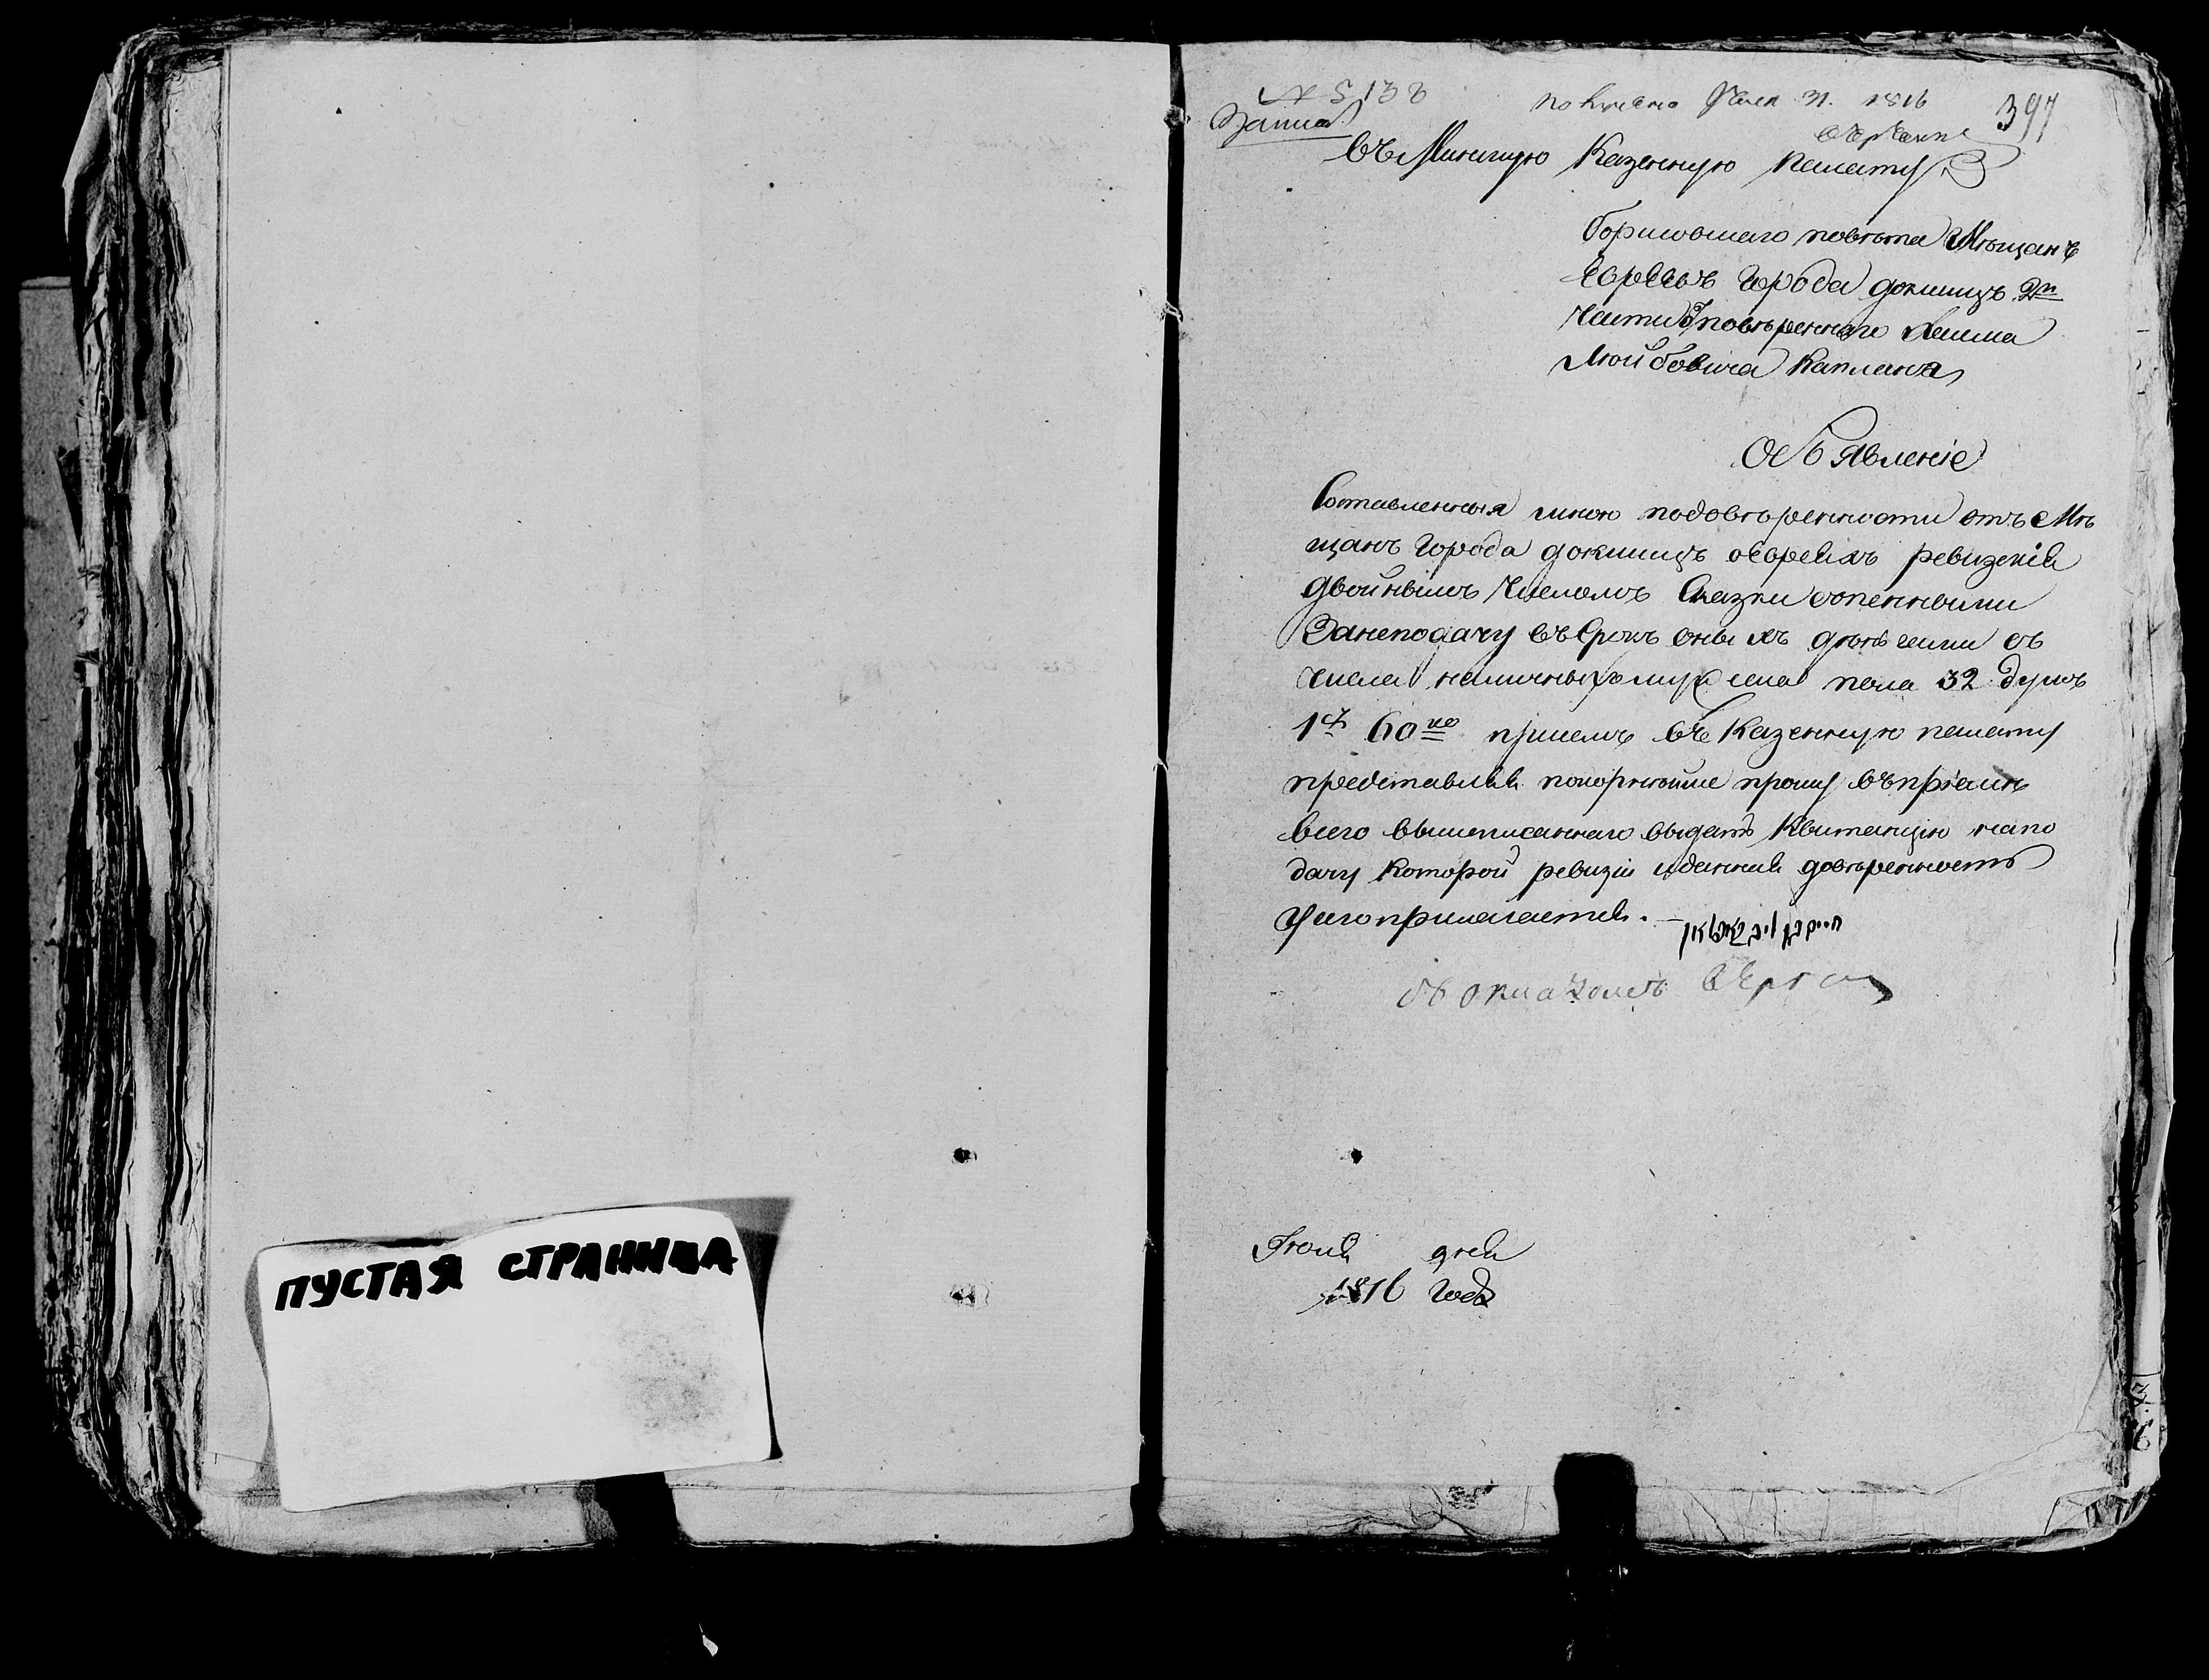 ПУСТАЯ СТРАНИЦА
№ 5138
1816
397
Въ Минскую Казенную палату
Борисовского повѣта Мѣщанъ
Евреевъ города Докшицъ 2й
Части повѣреннаго Хаима
Лейбовича Каплана
Объявленіе
Составленныя мною по довѣренности отъ Мѣ
щанъ города Докшицъ оевреяхъ ревизскія
двойнымъ числомъ Сказки
Занеподачу въ Срокъ оныхъ деньгами съ
числа наличныхъ мужеска пола 32 душъ
1р 60ко при семъ въ Казенную палату
представляя покорнѣйше прошу въ пріемѣ
всего вышеписаннаго выдать Квитанцію напо
дачу которой ревизіи иданная довѣренность
Усего прилагается. —
חיים בן ליב קאפלאן
Іюня дня
1816 года